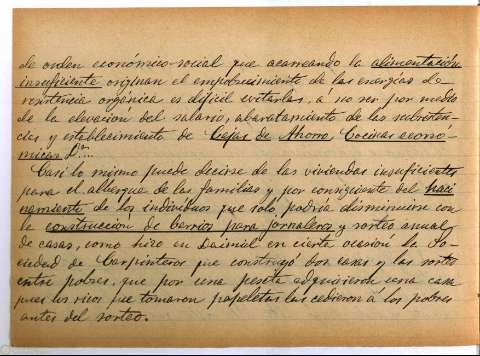 de orden económico-social que acarreando la alimentación
insuficiente originan el empobrecimiento de las energías de
resistencia orgánica es difícil evitarlas, á no ser por medio
de la elevación del salario, abaratamiento de las subsisten-
cias y establecimiento de Cajas de Ahorro, Cocinas econó-
micas &ª....
Casi lo mismo puede decirse de las viviendas insuficientes
para el albergue de las familias y por consiguiente del haci-
namiento de los individuos que solo podría disminuirse con
la construcción de barrios para jornaleros y sorteo anual
de casas, como hizo en Daimiel en cierta ocasión la So-
ciedad de Carpinteros que construyó dos casas y las sorteó
entre pobres, que por una peseta adquirieron una casa
pues los ricos que tomaron papeletas las cedieron á los pobres
antes del sorteo.